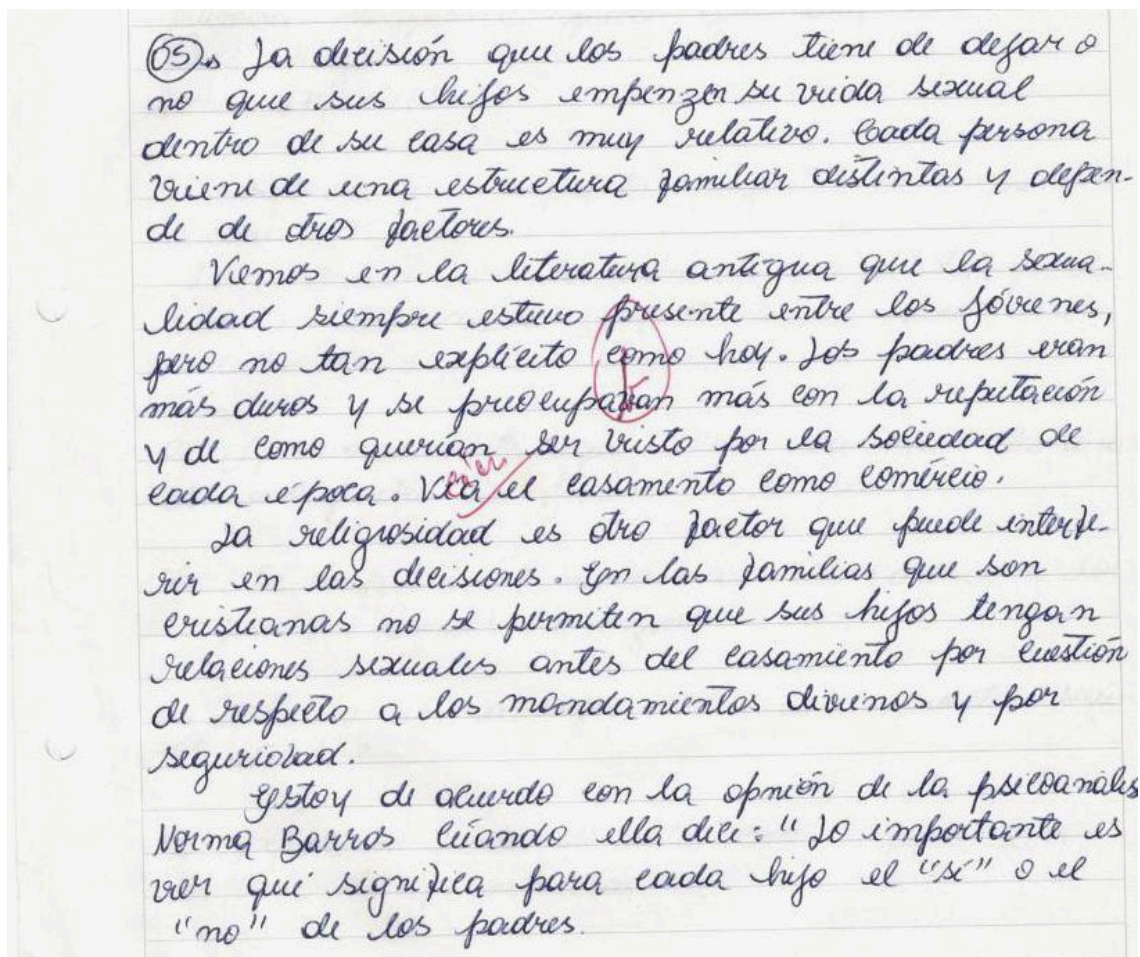 05). La decisión que los padres tiene de dejar o
no que sus hijos empenzen su vida sexual
dentro de su casa es muy relativo. Cada persona
viene de una estructura familiar distintas y depen-
de de otros factores.
Vemos en la literatura antigua que la sexua-
lidad siempre estuvo presente entre los jóvenes,
pero no tan explícito como hoy. Los padres eran
más duros y se preocupavan más con la reputación
y de como querían ser visto por la sociedad de
cada época. Veía el casamento como comércio.
La religiosidad es otro factor que puede interfe-
rir en las decisiones. En las familias que son
cristianas no se permiten que sus hijos tengan
relaciones sexuales antes del casamiento por cuestión
de respecto a los mandamientos divinos y por
seguridad.
Estoy de acuerdo con la opnión de la psicoanalis
Norma Barros cuándo ella dice: "Lo importante es
ver qué significa para cada hijo el "sí" o el
"no" de los padres.